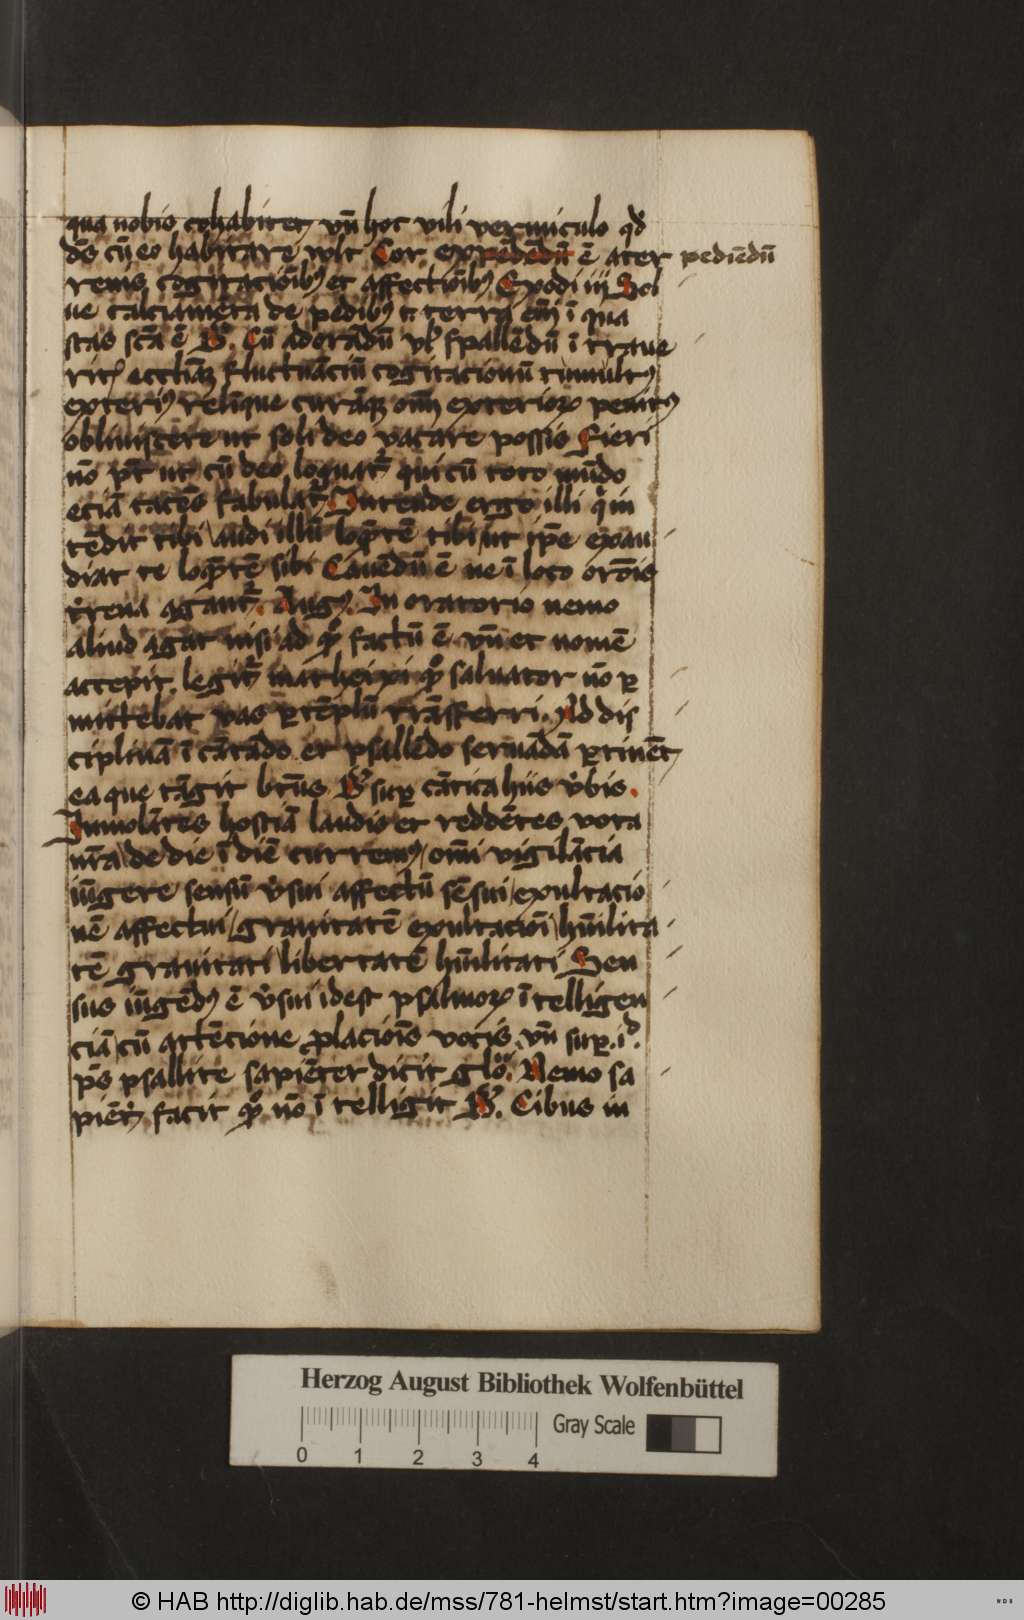 qua nobis cohabitet, vn̄ hoc vili vermiculo qđ
dēs cū eo habitare vult Cor expēdēdū ē a ter pediēdū
renis cogitacioīb9 et affectioīb9 Exodi iij Sol
ue calciamēta de pedib9 t. terra em̄ ī qua
stas scā ē B̾. Cū ad orādū vl̾ spallēdū ī traue
rit̾ eccliā fluctuāciū cogitacionū tumult9
exteri9 relinque curāqꝫ om̄ exterioꝝ penit9
obliuiscere ut soli deo vacare possis Fieri
nō pt̄ ut cū deo loquat̾ qui cū toto mūdo
eciā tacēs fabulat̾ Intende ergo illi q̾ in
tēdit tibi audi illū loq̄ntē tibi ut ip̄e exau
diat te loq̄ntē sibi Cauēdū ē ne ī loco orōis
t̾rena agant̾. Aug9. In oratorio nemo
aliud agat nisi ad qđ factū ē vn̄ et nomē
accepit. legit̾ mathei xxi qđ saluator nō ꝑ
mittebat vas ꝑ tēplū trāsferri. Ad dis
ciplinā ī cātādo et psallēdo seruādā ꝑtinēt
ea que tāgit btūs B̾ suꝑ cātica hiis v̾bis.
Immolātēs hostiā laudis et reddētes vota
nr̄a de die ī diē currem9 om̄i vigilācia
iūgere sensū v̾sui affectū sēsui exultacio
nē affectui grauitatē exultacioī hūilita
tē grauitati libertatē hūilitati Sen
sus iūgēd9 ē v̾sui idest psalmoꝝ ī telligen
ciā cū attēcione ꝓlacioīs vocis vn̄ suꝑ. id.
ps̄ psallite sapiēter dicit glo. Nemo sa
piēt̾ facit qđ nō ī telligit B̾. Cibus in
Herzog August Bibliothek Wolfenbüttel
Gray Scale
0 1 2 3 4
© HAB http://diglib.hab.de/mss/781-helmst/start.htm?image=00285